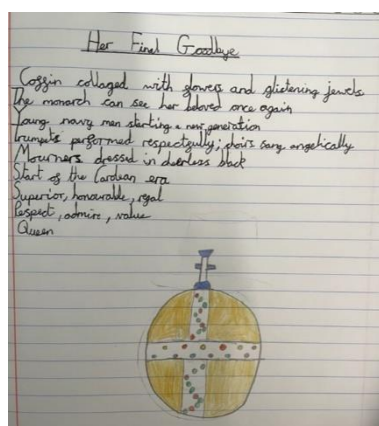 Her Final Goodbye
Coffin collaged with flowers and glistening jewels
The monarch can see her beloved once again
Young navy men starting a new generation
Trumpets performed respectfully; choirs sang angelically
Mourners dressed in black
Start of the era
Superior, honourable, regal
Respect, admire, value
Queen